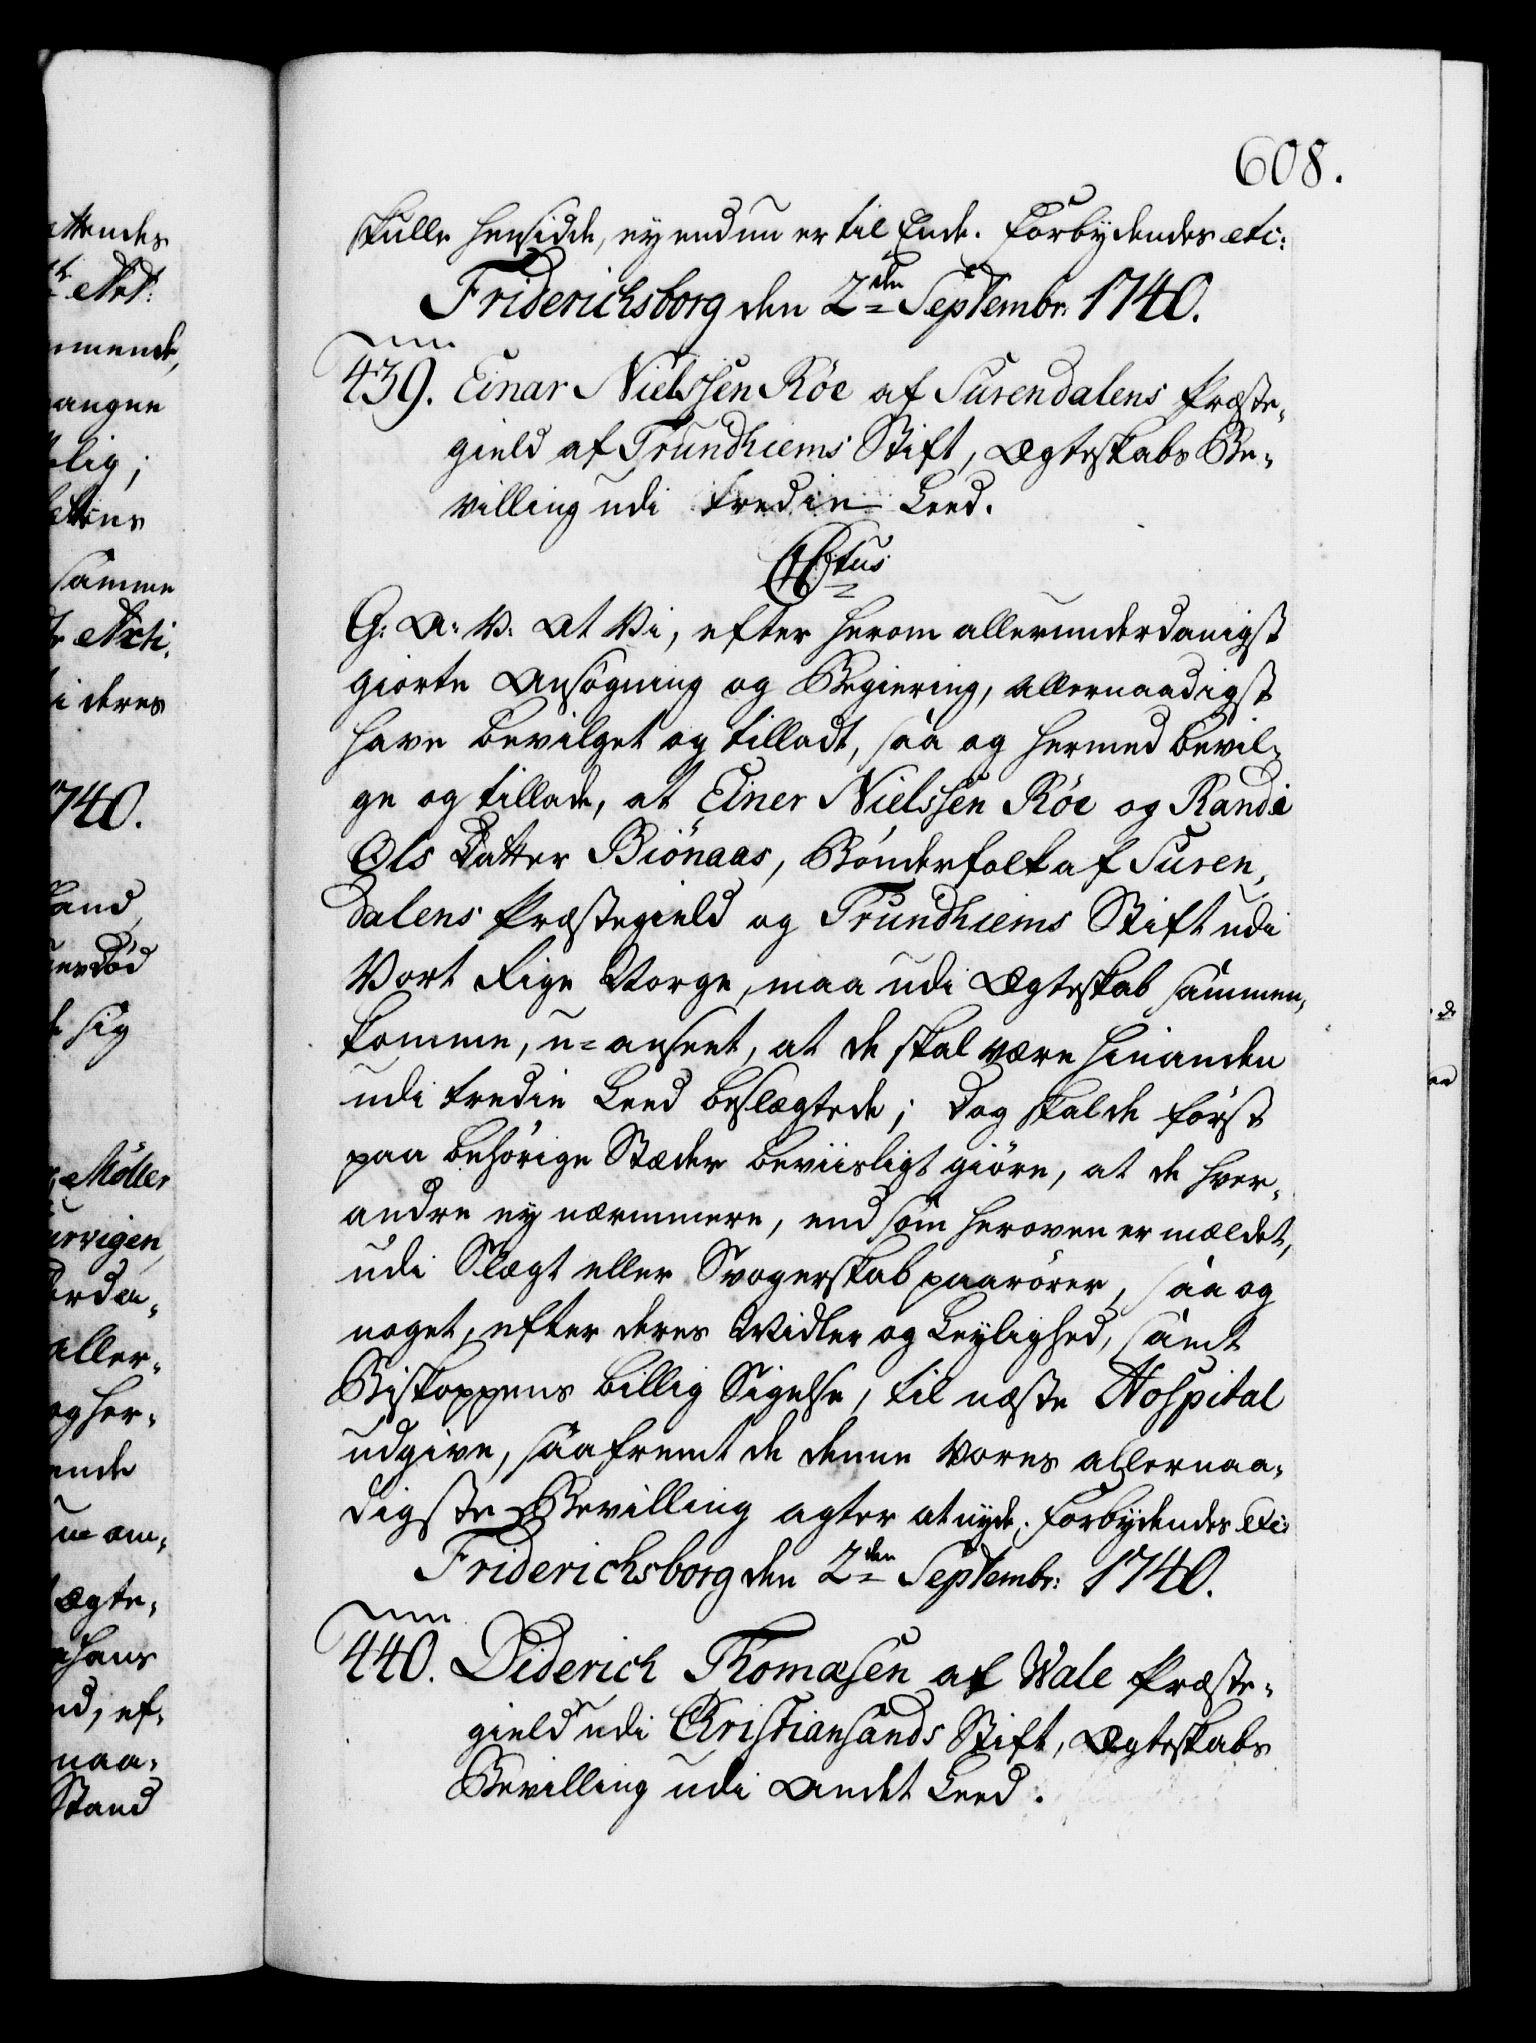 608.
skulle hensidde, ey endnu er til Ende. Forbydendes etc:
Friderichsborg den 2den Septembr: 1740.
439. Einar Nielssen Röe af Surendalens Præste-
gield af Trundhiems Stift, Ægteskabs Be-
villing udi tredie Leed.
G: A: V: At Vi, efter herom allerunderdanigst
giorte Ansögning og Begiering, allernaadigst
have bevilget og tilladt, saa og hermed bevil-
ge og tillade, at Einer Nielssen Röe og Randi
Ols Datter Biönaas, Bönderfolk af Suren-
dalens Præstegield og Trundhiems Stift udi
Vort Rige Norge, maa udi Ægteskab sammen-
komme, u-anseet, at de skal være hinanden
udi tredie Leed beslægtede; Dog skal de först
paa behörige Stæder beviisligt giöre, at de hver-
andre ey nærmere, end som heroven er meldet,
udi Slægt eller Svogerskab paarörer, saa og
noget, efter deres Midler og Leylighed, samt
Biskoppens billig Sigelse, til næste Hospital
udgive, saafremt de denne Vores allernaa-
digste Bevilling agter at nyde. Forbydendes etc:
Friderichsborg den 2den Septembr: 1740.
440. Diderich Thomasen af Wale Præste-
gield udi Christiansands Stift, Ægteskabs
Bevilling udi Andet Leed.
ttendes
Art:
mende,
angne
lig;
samme
i deres
1740.
land
död
sig
Möller
urvigen,
aller-
og her-
ende
ægte-
hans
nd, ef-
naa-
Stand